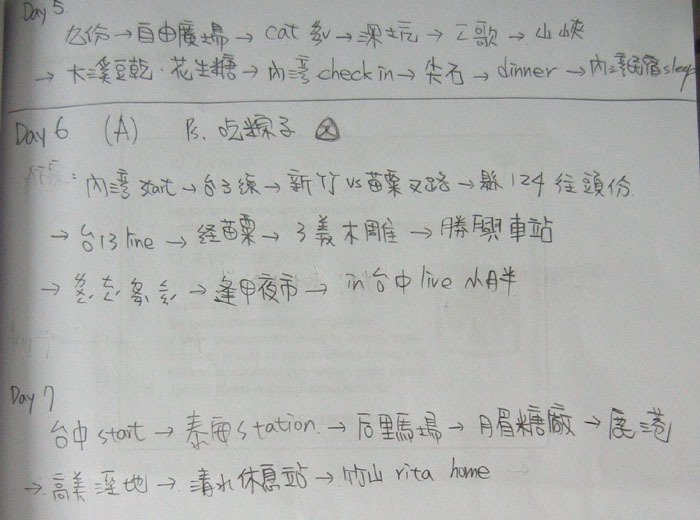 Day 5.
九份→自由廣場→cat 多v→深坑→工歌→山峽
→大溪豆乾.花生糖→內灣check in→尖石→dinner→內灣民宿sleep
Day 6 (A) B.吃粽子
內灣start→台3線→新竹vs苗栗叉路→縣124往頭份
→台13 line→経苗栗→3義木雕→勝興車站
→逢甲夜市→in台中live 小胖
Day 7
台中start→泰安station.→后里馬場→月眉糖廠→鹿港
→高美溼地→清水休息站→竹山 rita home